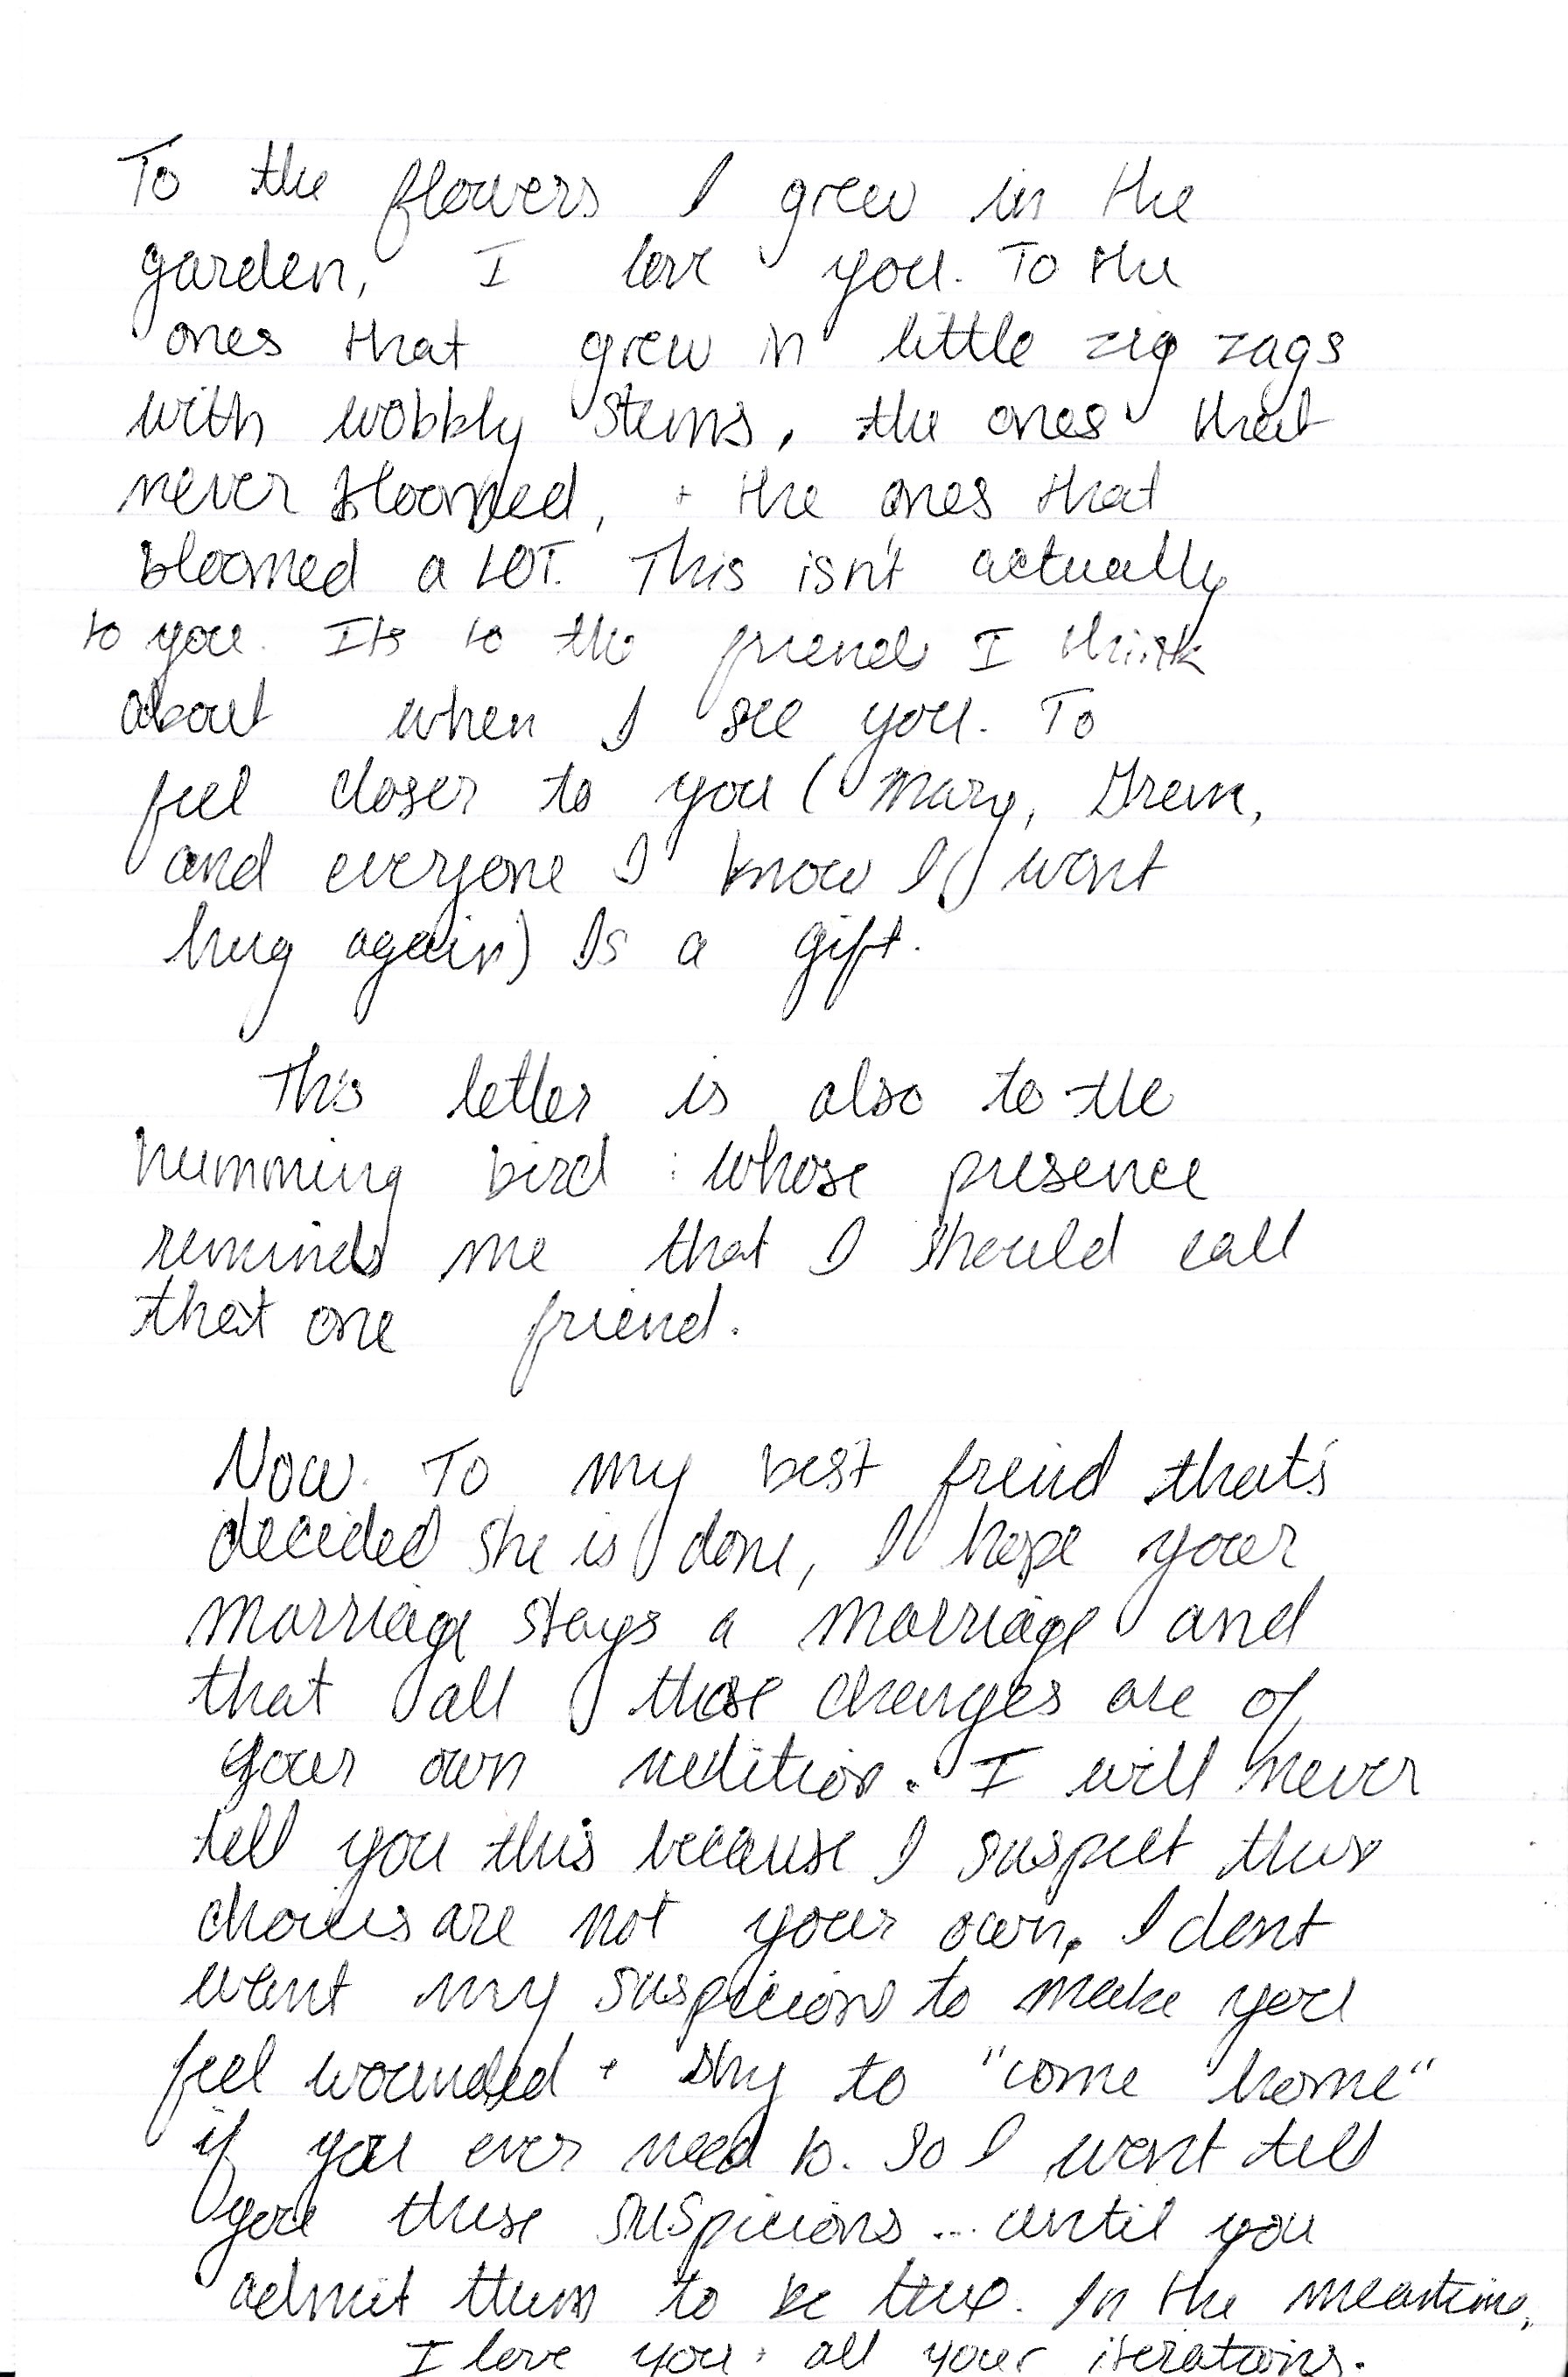 To the flowers I grew in the
garden, I love you. To the
ones that grew in little zig zags
with wobbly stems, the ones that
never bloomed, + the ones that
bloomed a LOT. This isn't actually
to you. Its to the friends I think
about when I see you. To
feel closer to you (Mary, Gram,
and everyone I know I wont
hug again) Is a gift.
This letter is also to the
humming bird : whose presence
reminds me that I should call
that one friend.
Now. To my best freind that's
decided she is done, I hope your
marriage stays a marriage and
that all those changes are of
your own volition. I will never
tell you this because I suspect these
choices are not your own. I dont
want my suspicions to make you
feel wounded + shy to "come home"
if you ever need to. So I wont tell
you these suspicions... until you
admit them to be true. In the meantime,
I love you + all your iterations.